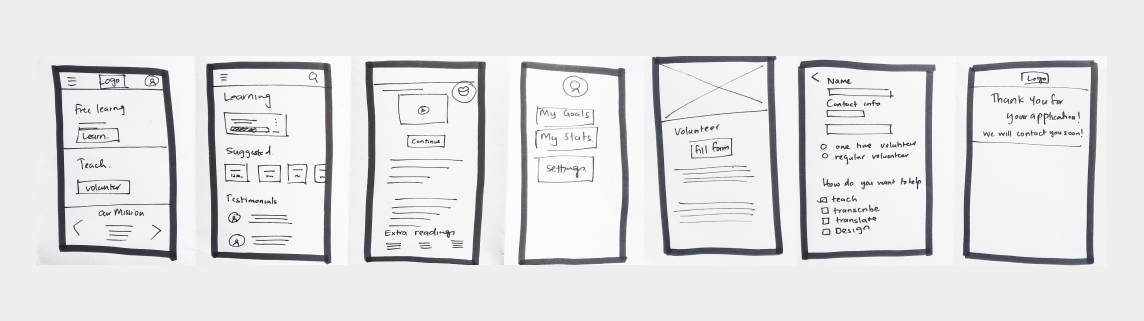 Logo
Free learng
Learn.
Teach.
volunter
our Mission
Learning
Suggested.
Testimonials
Continue
Extra readings
My Goals
My Stats
Settings.
Volunteer
fill form
Name
Contact info
one time volunteer
regular volunteer
How do you want to help
teach
transcribe
translate
Design
Logo
Thank You for
your application!
We will contact you soon!